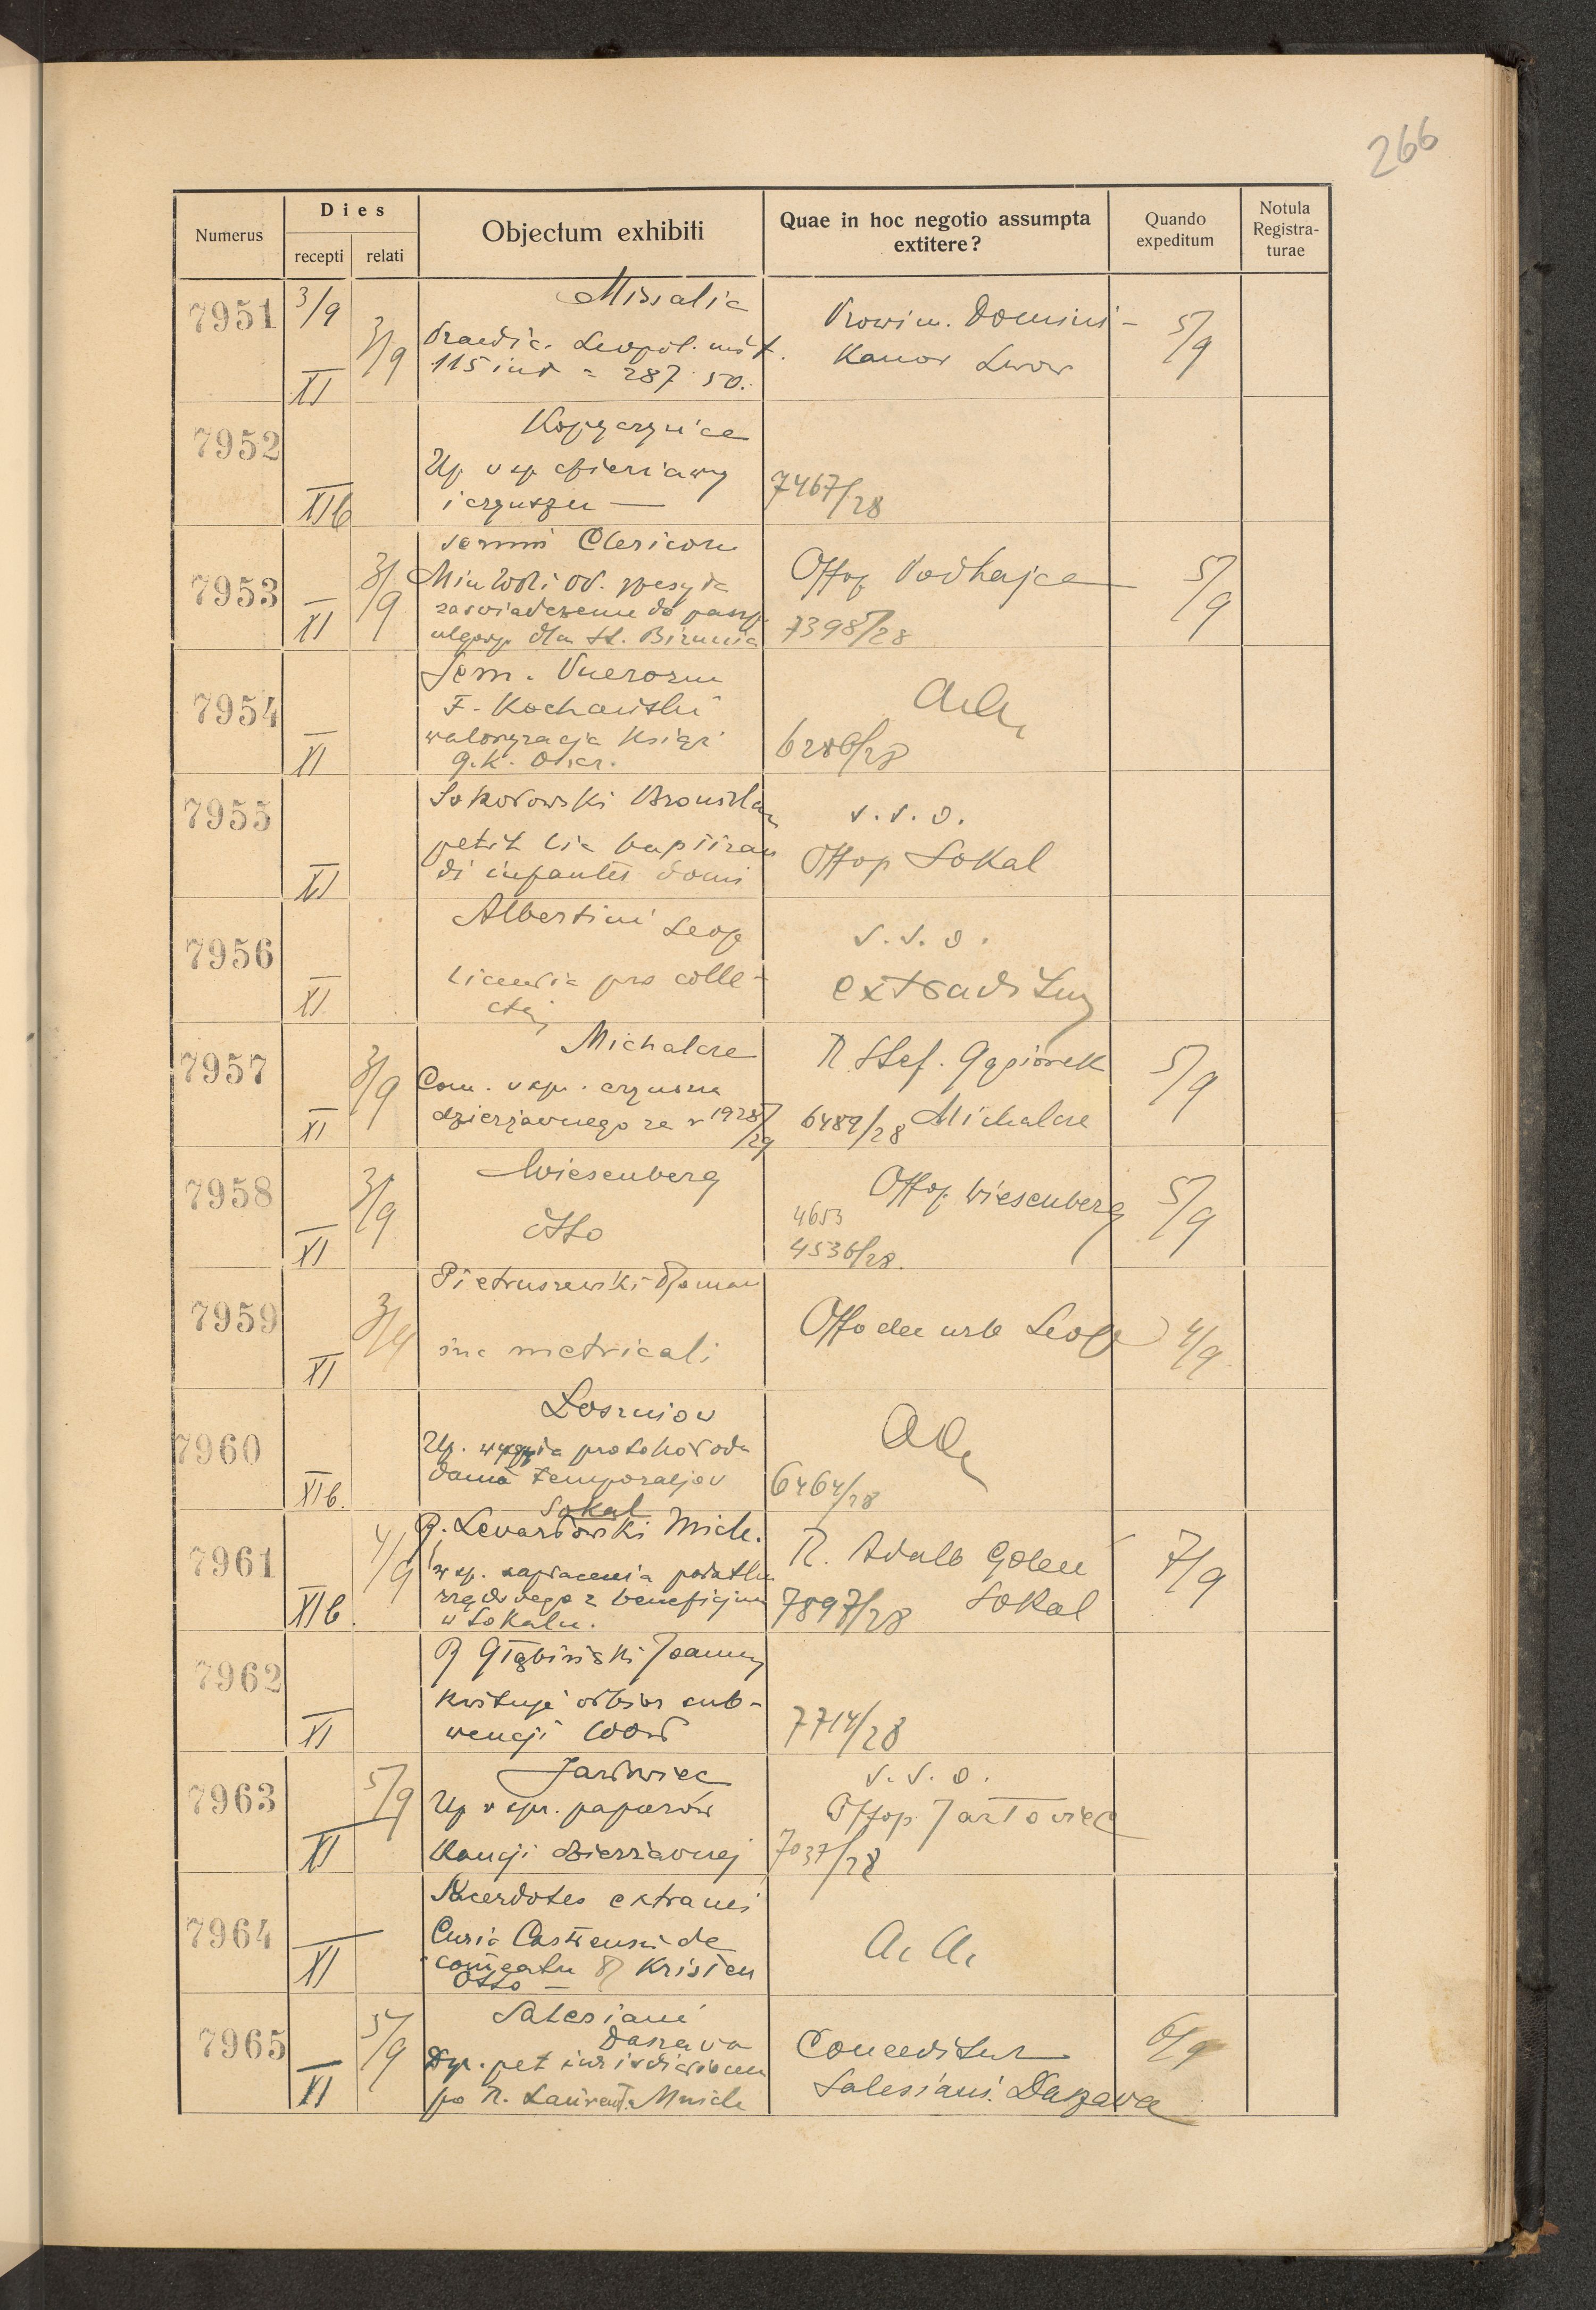 266
Numerus
Dies
recepti
relati
Objectum exhibiti
Quae in hoc negotio assumpta
extitere?
Quando
expeditum
Notula
Registra-
turae
7951
3/9
XI
3/9
Missalia
115 int = 287.50.
Prowin. Domini-
kanor Lwow
5/9
7952
XIb
Kopyczyńce
Up w sp dzierżawy
i czynszu —
7467/28
7953
XI
3/9
Clericoru
zaświadczenie do
dla St.
Offop Podhajce
7398/28
5/9
7954
XI
Sem. Puerorum
F. Kochański
waloryzacja Książ
aa
6286/28
7955
XI
Sokołowski Bronisław
petit lic baptizan
di infantes domi
v.s.o.
Offop Sokal
7956
XI
Albertini Leop
Licentia pro colle-
cta
v.s.o.
extraditum
7957
XI
3/9
Michalcze
Com. w spr. czynszu
dzierżawnego za r 1928/29
R Stef. Gąsiorek
6489/28 Michalcze
5/9
7958
XI
3/9
Wiesenberg
Otto
Offop Wiesenberg
4653
4536/28.
5/9
7959
XI
Pietruszewski Roman
metricali
Leop
4/9
7960
XIb.
Łoszniow
Up. protokoł odn
temporaljow
aa
6464/28
7961
XIb.
4/9
Sokal
R. Lewandowski Mich.
w sp. zapłacenia podatku
z beneficjum
w Sokalu.
R. Adalb Goleń
7897/28 Sokal
7/9
7962
XI
R Głąbiński Joannes
kwituje odbiór sub-
wencji
7714/28
7963
XI
5/9
Jazłowiec
Up w spr. papierów
Kaucji dzierżawnej
v.s.o.
Offop Jazłowiec
7037/28
7964
XI
Sacerdotes extranei
Curia Castrensis de
comeatu R Kristen
Otto —
a. a.
7965
XI
5/9
Salesiani
Daszawa
pet jurisdictionem
po R. Laurent. Mnich
Conceditur
Salesiani. Daszawa
6/9